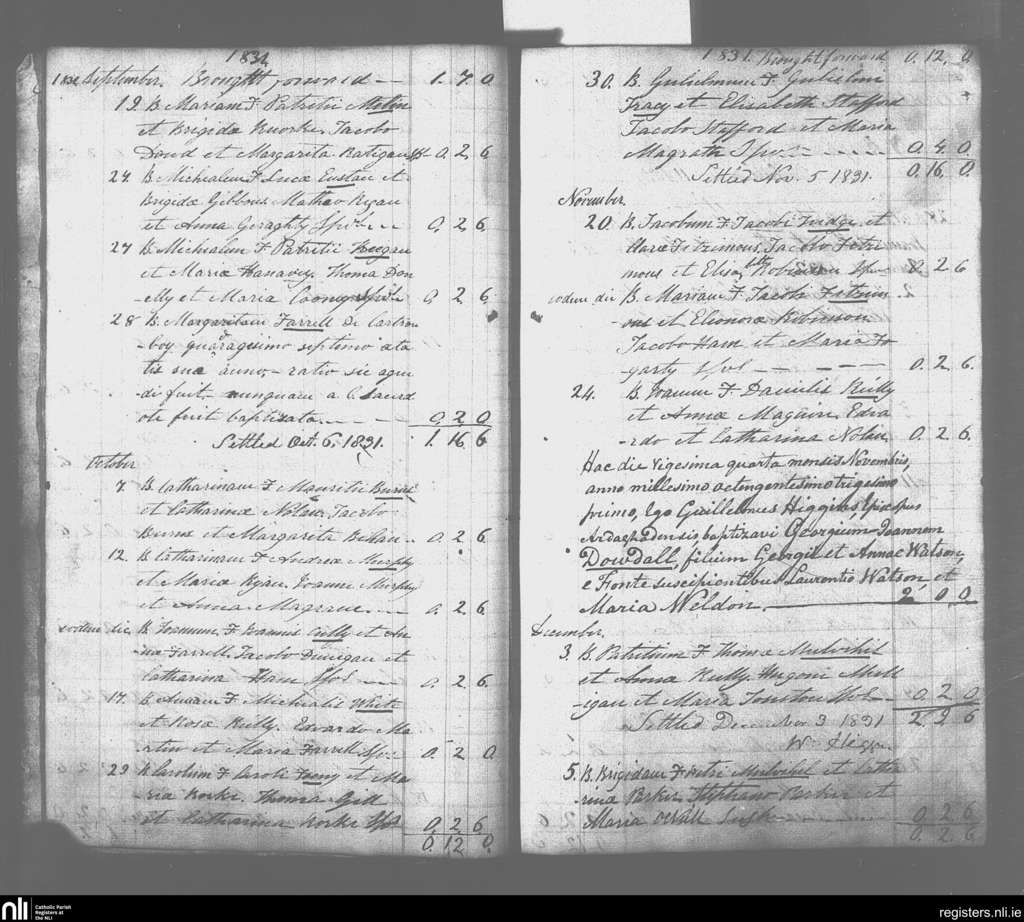 1831
1831 September. Brought forward — 1. 7. 0
19. B. Mariam F. Patritii
et Brigidæ Jacobo
Dowd et Margarita Ratigan Sps — 0. 2. 6
24. B. Michialem F. Lucæ Eustau et
Brigidæ Gibbons Matheo Ryan
et Anna Geraghty Sps 0. 2. 6
27 B. Michialem F. Patritii Keegan
et Mariæ Hanavey. Thoma Don-
-elly et Maria Coony Sps 0 2 6
28 B. Margaritam Farrell De Castrom
-boy quaragesimo septimo æta
tis suæ anno — ratio sic agen
di fuit nunquam a C. Sacerd
ote fuit baptizata. — 0. 2 0
Settled Oct. 6. 1831. 1. 16. 6
October
7. B. Catharinam F. Mauritii Burns
et Catharinæ Nolan Jacobo
Burns et Margarita Behan — 0. 2. 6
12. B. Catharinam F. Andreæ Murphy
et Mariæ Ryan. Joanne Murphy
et Anna Magrane. — 0. 2 6
eodem die B. Joannem F. Joannis Cully et An-
næ Farrell. Jacobo Dunigan et
Catharina Ham Sps — 0. 2 6.
17. B. Annam F. Michialis White
et Rosæ Reilly. Edvardo Ma-
-rtin et Maria Farrell Sps 0. 2 0
29 B. Carolum F. Caroli et Ma-
-riæ Rorke. Thoma Gill
et Catharina Rorke Sps 0. 2 6
0. 12 0.
1831. Brought forward 0. 12. 0
30. B. Gulielmum F. Gulielmi
Tracy et Elisabeth Stafford
Jacobo Stafford et Maria
Magrath Sps — 0. 4. 0
Settled Nov. 5 1831. 0. 16. 0
November.
20. B. Jacobum F. Jacobi et
Claræ Fitzimons, Jacobo Fitzi-
mons et Elisa bth Robinson Sps 0. 2 6
eodem die B. Mariam F. Jacobi Fitzim-
-ons et Eleonoræ Robinson
Jacobo Ham et Maria Fo-
garty Sps — 0. 2. 6.
24. B. Joannem F. Danielis Reilly
et Annæ Maguire. Edva-
-rdo et Catharina Nolan 0. 2 6.
Hac die vigesima quarta mensis Novembris,
anno millesimo octengentesimo trigesimo
primo, Ego Guillelmus Higgins, Episcopus
Ardaghadensis, baptizavi Georgium Joannem
Dowdall, filium Georgii et Annae Watson,
e Fonte suscipientibus Laurentio Watson et
Maria Weldon. — 2, 0, 0
December.
3. B. Patritium F. Thomæ Mulvihil
et Annæ Reilly. Hugoni Mull
-igan et Maria Sps — 0. 2 0
Settled December 3 1831 2 2 6
Wm Higgs.
5. B. Brigidam F. Petri Mulvihil et Catha
-rinæ Parker. Stephano Parker et
Maria — 0 2 6
0. 2. 6
nli Catholic Parish
Registers at
the NLI
registers.nli.ie